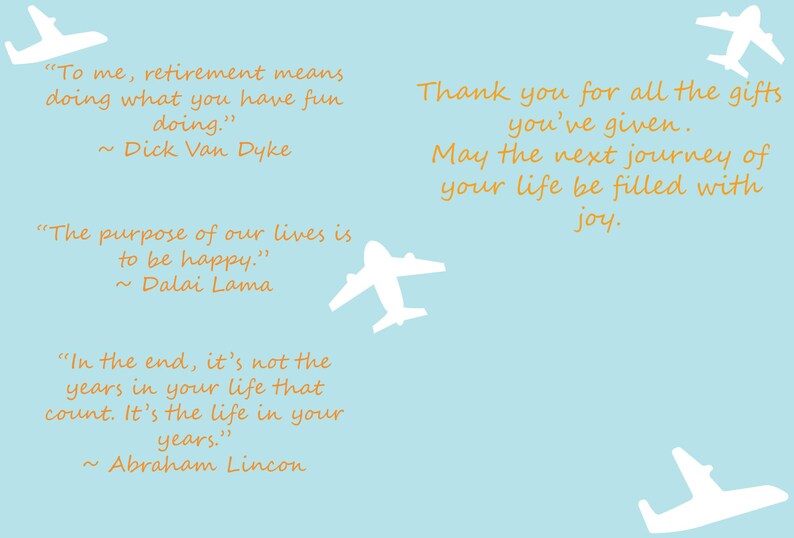 “To me, retirement means
doing what you have fun
doing.”
~ Dick Van Dyke
“The purpose of our lives is
to be happy.”
~ Dalai Lama
“In the end, it’s not the
years in your life that
count. It’s the life in your
years.”
~ Abraham Lincon
Thank you for all the gifts
you’ve given.
May the next journey of
your life be filled with
joy.